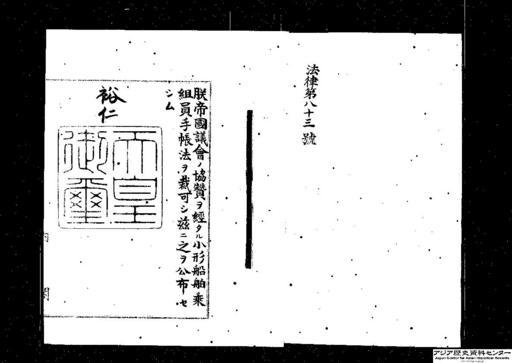 法律第八十三號
朕帝國議會ノ協贊ヲ經タル小形船舶乘
組員手帳法ヲ裁可シ茲ニ之ヲ公布セ
シム
裕仁
天皇
御璽
内閣
アジア歴史資料センター
Japan Center for Asian Historical Records